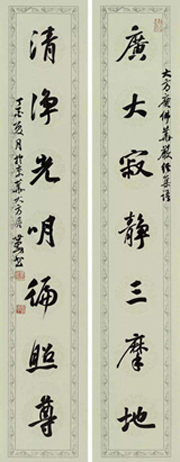 大方廣佛華嚴經集語
廣大寂靜三摩地
清淨光明徧照尊
丁酉夏月於京華大方居